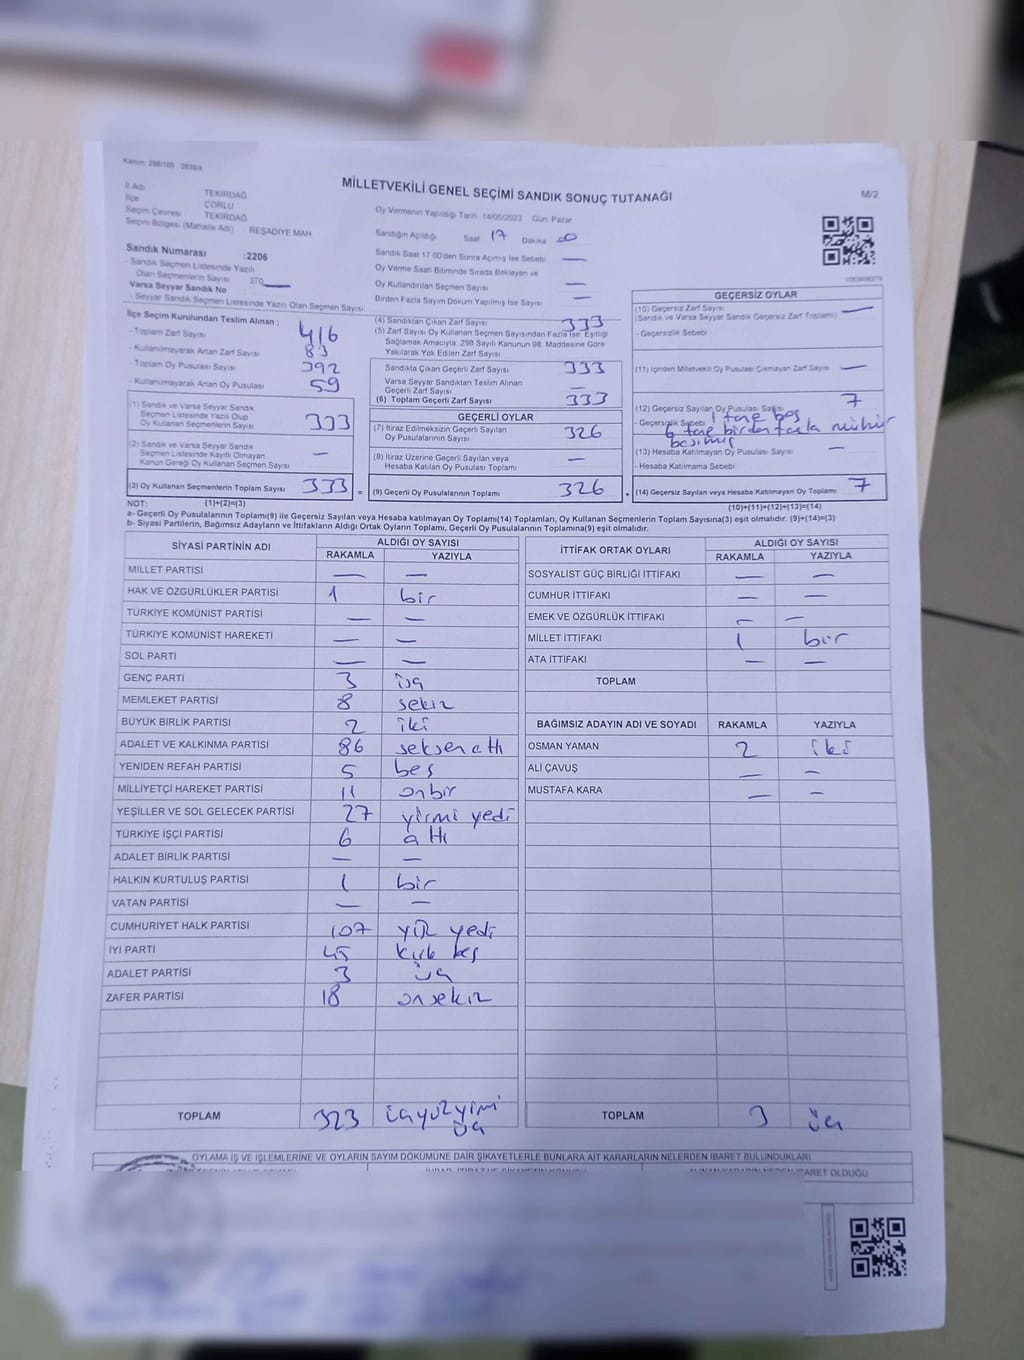 Kanun: 298/105 2839/a
MİLLETVEKİLİ GENEL SEÇİMİ SANDIK SONUÇ TUTANAĞI
M/2
İl Adı TEKİRDAĞ
İlçe ÇORLU
Seçim Çevresi TEKİRDAĞ
Seçim Bölgesi (Mahalle Adı) REŞADİYE MAH
Sandık Numarası :2206
- Sandık Seçmen Listesinde Yazılı
Olan Seçmenlerin Sayısı 370
Varsa Seyyar Sandık No :
- Seyyar Sandık Seçmen Listesinde Yazılı Olan Seçmen Sayısı
Oy Vermenin Yapıldığı Tarih 14/05/2023 Gün: Pazar
Sandığın Açıldığı Saat 17 Dakika 00
Sandık Saat 17:00'den Sonra Açılmış İse Sebebi —
Oy Verme Saati Bitiminde Sırada Bekleyen ve
Oy Kullandırılan Seçmen Sayısı —
Birden Fazla Sayım Döküm Yapılmış İse Sayısı —
İlçe Seçim Kurulundan Teslim Alınan ;
- Toplam Zarf Sayısı 416
- Kullanılmayarak Artan Zarf Sayısı 83
- Toplam Oy Pusulası Sayısı 392
- Kullanılmayarak Artan Oy Pusulası 59
(1) Sandık ve Varsa Seyyar Sandık
Seçmen Listesinde Yazılı Olup
Oy Kullanan Seçmenlerin Sayısı 333
(2) Sandık ve Varsa Seyyar Sandık
Seçmen Listesinde Kayıtlı Olmayan
Kanun Gereği Oy Kullanan Seçmen Sayısı —
(3) Oy Kullanan Seçmenlerin Toplam Sayısı 333 =
(4) Sandıktan Çıkan Zarf Sayısı 333
(5) Zarf Sayısı Oy Kullanan Seçmen Sayısından Fazla İse, Eşitliği
Sağlamak Amacıyla, 298 Sayılı Kanunun 98. Maddesine Göre
Yakılarak Yok Edilen Zarf Sayısı
Sandıkta Çıkan Geçerli Zarf Sayısı 333
Varsa Seyyar Sandıktan Teslim Alınan
Geçerli Zarf Sayısı —
(6) Toplam Geçerli Zarf Sayısı 333
GEÇERLİ OYLAR
(7) İtiraz Edilmeksizin Geçerli Sayılan
Oy Pusulalarının Sayısı 326
(8) İtiraz Üzerine Geçerli Sayılan veya
Hesaba Katılan Oy Pusulası Toplamı —
(9) Geçerli Oy Pusulalarının Toplamı 326
GEÇERSİZ OYLAR
(10) Geçersiz Zarf Sayısı —
(Sandık ve Varsa Seyyar Sandık Geçersiz Zarf Toplamı)
- Geçersizlik Sebebi
(11) İçinden Milletvekili Oy Pusulası Çıkmayan Zarf Sayısı —
(12) Geçersiz Sayılan Oy Pusulası Sayısı 7
- Geçersizlik Sebebi 1 tane boş
6 tane birden fazla mühür
basılmış
(13) Hesaba Katılmayan Oy Pusulası Sayısı —
- Hesaba Katılmama Sebebi
(14) Geçersiz Sayılan veya Hesaba Katılmayan Oy Toplamı 7
NOT: (1)+(2)=(3) (10)+(11)+(12)+(13)=(14)
a- Geçerli Oy Pusulalarının Toplamı(9) ile Geçersiz Sayılan veya Hesaba katılmayan Oy Toplamı(14) Toplamları, Oy Kullanan Seçmenlerin Toplam Sayısına(3) eşit olmalıdır. (9)+(14)=(3)
b- Siyasi Partilerin, Bağımsız Adayların ve İttifakların Aldığı Ortak Oyların Toplamı, Geçerli Oy Pusulalarının Toplamına(9) eşit olmalıdır.
SİYASİ PARTİNİN ADI ALDIĞI OY SAYISI
RAKAMLA YAZIYLA
MİLLET PARTİSİ — —
HAK VE ÖZGÜRLÜKLER PARTİSİ 1 bir
TÜRKİYE KOMÜNİST PARTİSİ — —
TÜRKİYE KOMÜNİST HAREKETİ — —
SOL PARTİ — —
GENÇ PARTİ 3 üç
MEMLEKET PARTİSİ 8 sekiz
BÜYÜK BİRLİK PARTİSİ 2 iki
ADALET VE KALKINMA PARTİSİ 86 seksen altı
YENİDEN REFAH PARTİSİ 5 beş
MİLLİYETÇİ HAREKET PARTİSİ 11 onbir
YEŞİLLER VE SOL GELECEK PARTİSİ 27 yirmi yedi
TÜRKİYE İŞÇİ PARTİSİ 6 altı
ADALET BİRLİK PARTİSİ — —
HALKIN KURTULUŞ PARTİSİ 1 bir
VATAN PARTİSİ — —
CUMHURİYET HALK PARTİSİ 107 yüz yedi
İYİ PARTİ 45 kırk beş
ADALET PARTİSİ 3 üç
ZAFER PARTİSİ 18 onsekiz
TOPLAM 323 üçyüzyirmi
üç
İTTİFAK ORTAK OYLARI ALDIĞI OY SAYISI
RAKAMLA YAZIYLA
SOSYALİST GÜÇ BİRLİĞİ İTTİFAKI — —
CUMHUR İTTİFAKI — —
EMEK VE ÖZGÜRLÜK İTTİFAKI — —
MİLLET İTTİFAKI 1 bir
ATA İTTİFAKI — —
TOPLAM
BAĞIMSIZ ADAYIN ADI VE SOYADI RAKAMLA YAZIYLA
OSMAN YAMAN 2 iki
ALİ ÇAVUŞ — —
MUSTAFA KARA — —
TOPLAM 3 üç
OYLAMA İŞ VE İŞLEMLERİNE VE OYLARIN SAYIM DÖKÜMÜNE DAİR ŞİKAYETLERLE BUNLARA AİT KARARLARIN NELERDEN İBARET BULUNDUKLARI